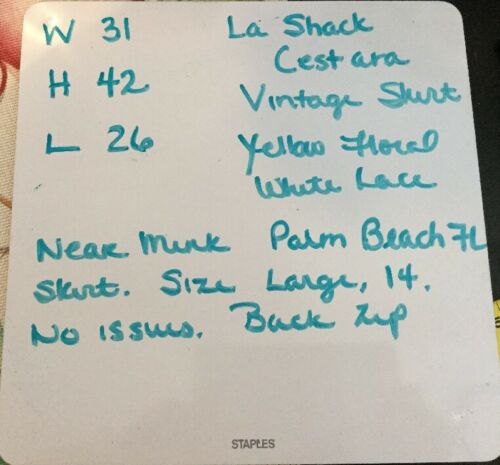 W 31 La Shack
Cestara
H 42 Vintage Skirt
L 26 Yellow Floral
White Lace
Near Mink Palm Beach FL
Skirt. Size Large, 14.
No issues. Back Zip
STAPLES